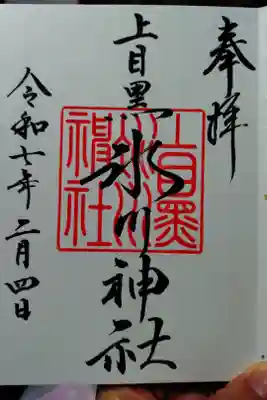 奉拝
上目黒氷川神社
上目黒氷川神社
令和七年二月四日